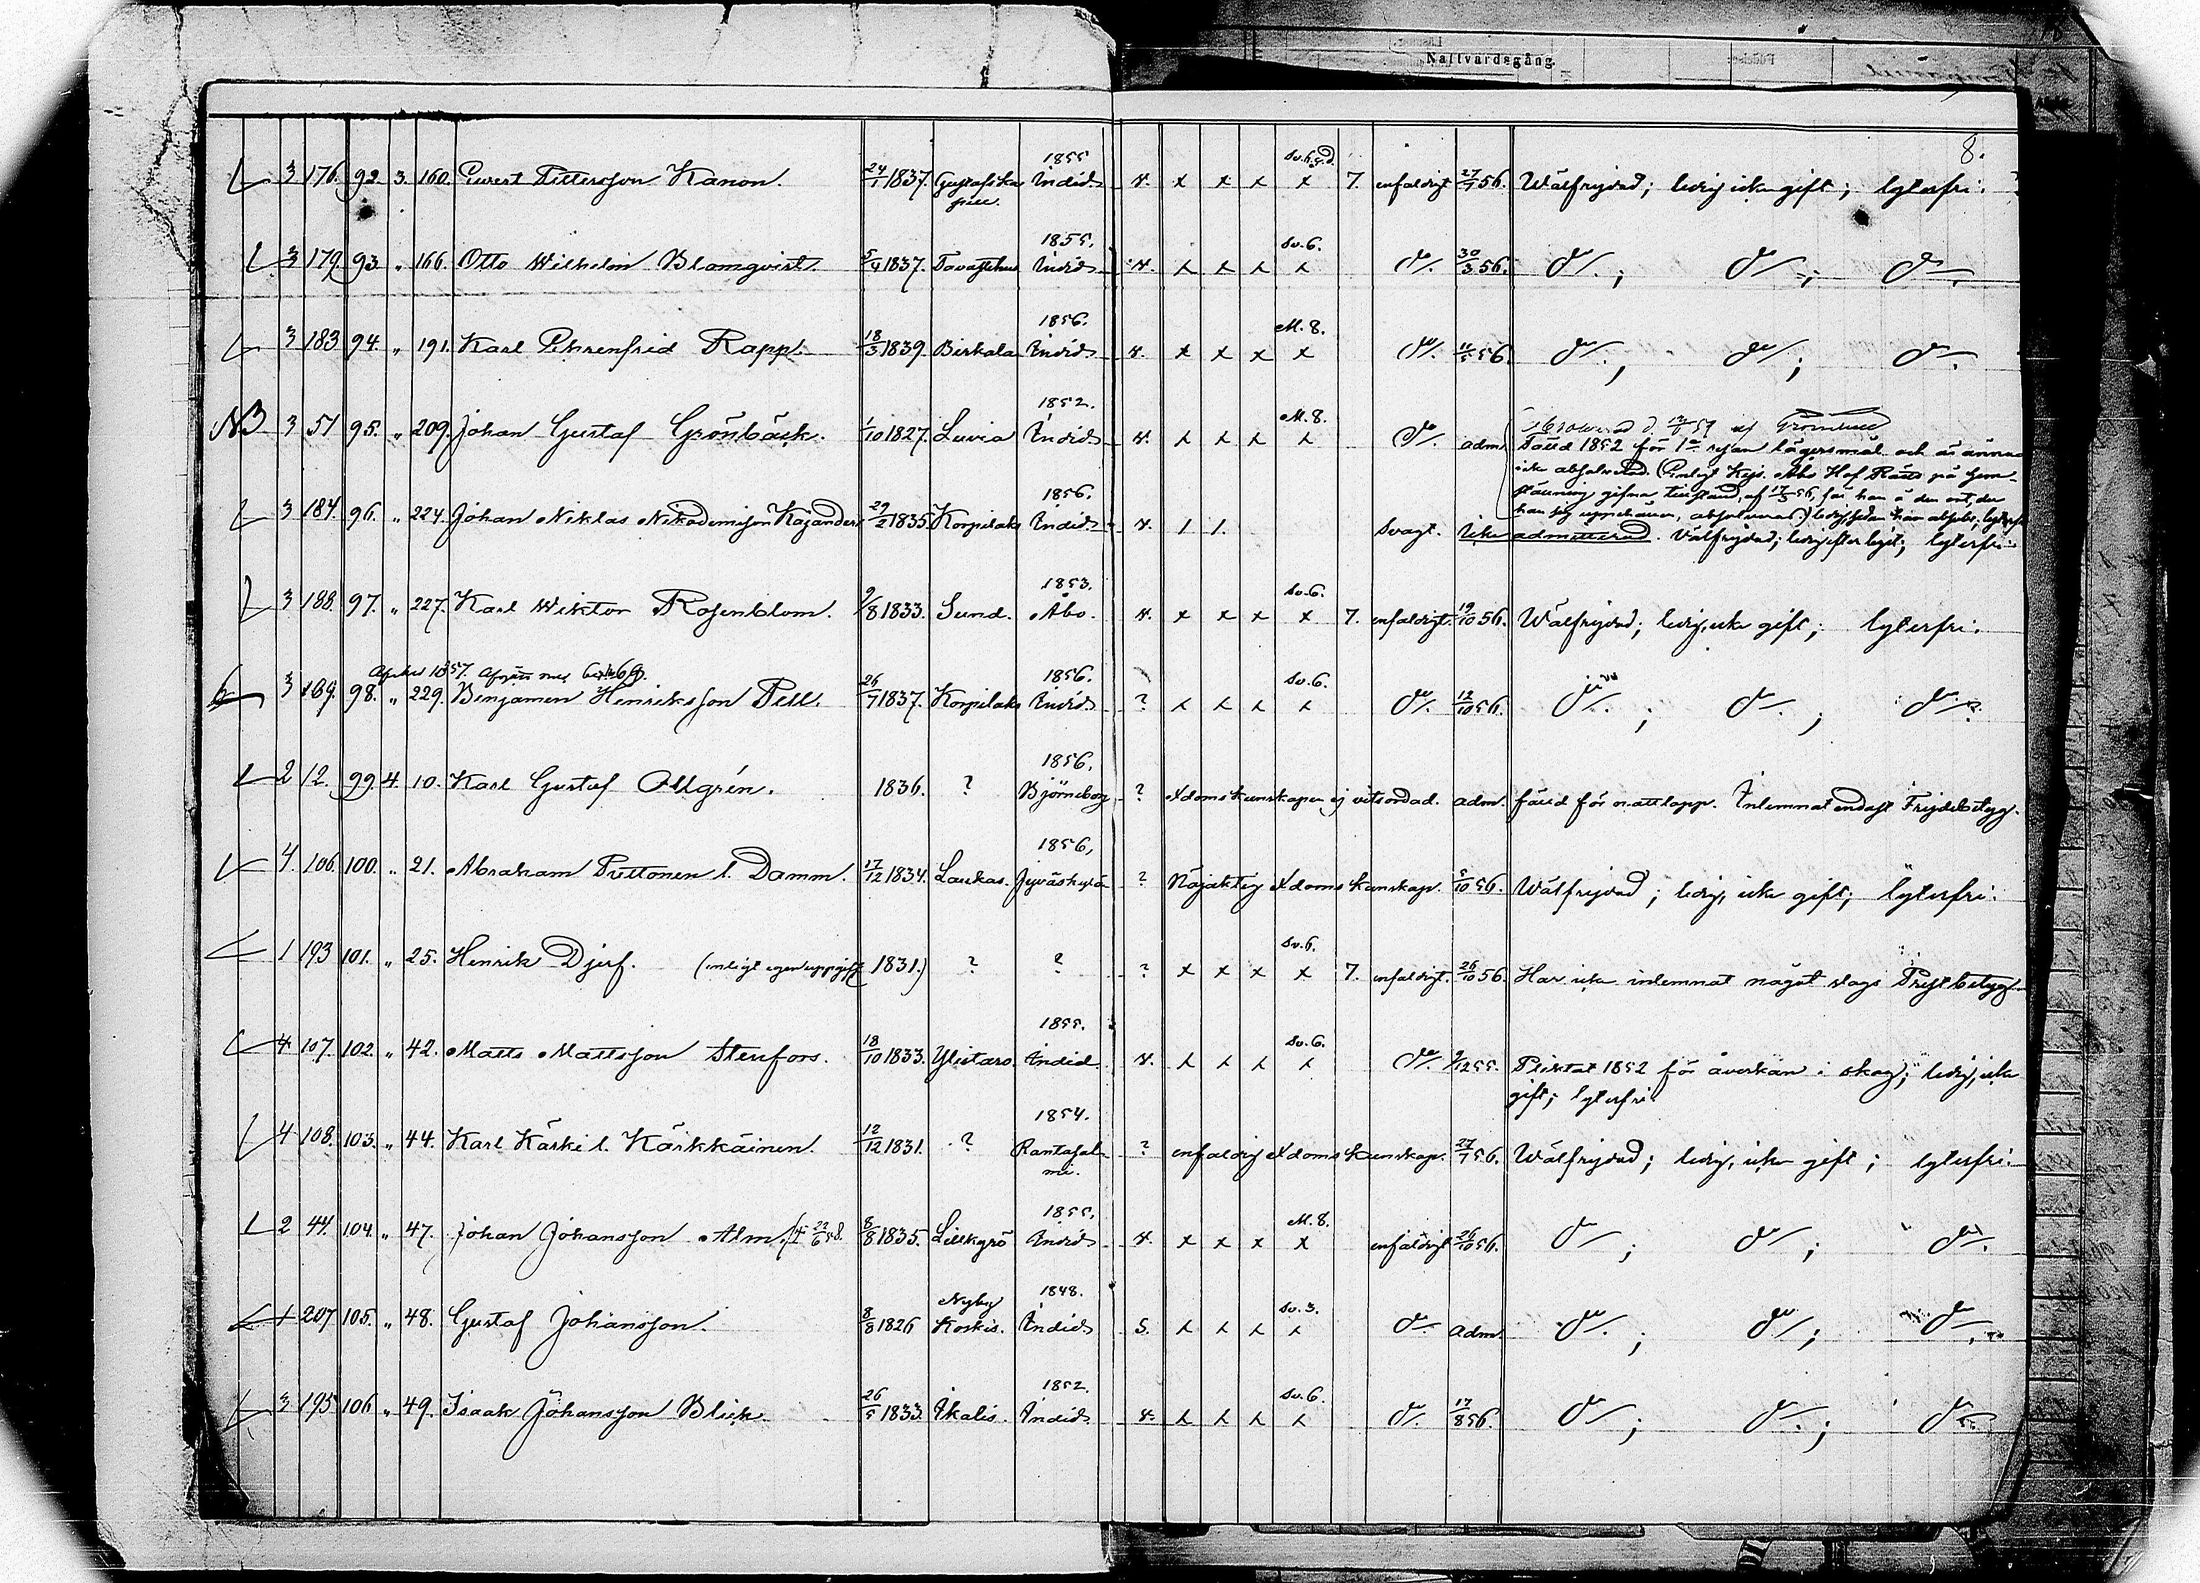 Nattvardsgång.
8.
3. 176. 92. 3. 160. Ewert Pettersson Kanon. 24/1 1837. Gustafs ka- pell. 1855 Indid. 4. x x x x Sv. 6. 7. enfaldigt 27/7 56. Wälfrejdad; ledig, icke gift; lyterfri.
3 179. 93. " 166. Otto Wilhelm Blomqvist. 5/4 1837. Tavastehus 1855. Indid. 4. x x x x Sv. 6. do. 30/3 56. do.; do.; do.
3 183 94. " 191. Karl Ehrenfrid Rapp. 18/3 1839. Birkala 1856. Indid. 4. x x x x M. 8. do. 11/5 56. do.; do.; do.
NB 3 57 95. " 209. Johan Gustaf Grönbäck. 1/10 1827. Luvia 1852. Indid. 4. x x x x M. 8. do. adm.
Säkd 1852 för 1a resan lägersmål och är ännu
icke absolverad. (Enligt Kejs. Åbo Hof Rätts på hem-
ställning gifna tillstånd, af 17/3 56, får han å den ort, der
han sig uppehåller, absolveras)
3 184. 96. " 224. Johan Niklas Nikodemisson Kajander 29/2 1835. Korpilaks 1856. Indid. 4. 1 1. Svagt. Icke admitterad. Välfrejdad; ledig efter lysn; lyterfri.
3 188. 97. " 227. Karl Wiktor Rosenblom. 9/8 1833. Sund. 1853. Åbo. 4. x x x x Sv. 6. 7. enfaldigt. 19/10 56. Wälfrejdad; ledig, icke gift; lyterfri.
1857.
3 169. 98. " 229. Benjamin Henriksson Pell. 26/7 1837. Korpilaks 1856. Indid. ? x x x x Sv. 6. do. 12/10 56. do.; do.; do.
2 12. 99. 4. 10. Karl Gustaf Ollgrén. 1836. ? 1856. Björneborg ? Xdoms kunskapen ej vitsordad. adm. säkd för nattlopp. Inlemnat endast Frejdebetyg.
4. 106. 100. " 21. Abraham Puttonen l. Damm. 17/12 1834. Laukas. 1856, Jyväskylä ? Nöjaktig Xdoms kunskap. 5/10 56. Wälfrejdad; ledig, icke gift; lyterfri.
1 193 101. " 25. Henrik Djerf. (enligt egen uppgift 1831.) ? ? ? x x x x Sv. 6. 7. enfaldigt. 26/10 56. Har icke inlemnat något slags Prestbetyg.
4 107. 102. " 42. Matts Mattsson Stenfors. 18/10 1833. Ylistaro. 1855. Indid. 4. x x x x Sv. 6. do. 9/12 55. Pliktat 1852 för åverkan i skog; ledig, icke
gift; lyterfri.
4 108. 103. " 44. Karl Kärki l. Kärkkäinen. 12/12 1831. ? 1854. Rantasal- mi. ? enfaldig Xdoms kunskap. 27/7 56. Wälfrejdad; ledig, icke gift; lyterfri.
2 44. 104. " 47. Johan Johansson Alm. († 22/6 58. 8/8 1835. Lillkyrö 1855. Indid. 4. x x x x M. 8. enfaldigt 26/10 56. do.; do.; do.
1 207 105. " 48. Gustaf Johansson. 8/8 1826 Nyby Koskis. 1848. Indid. 5. x x x x Sv. 3. do. adm. do.; do.; do.
3 195 106 " 49. Isaak Johansson Blick. 26/5 1833. Ikalis. 1852. Indid. 4. x x x x Sv. 6. do. 17/8 56. do.; do.; do.